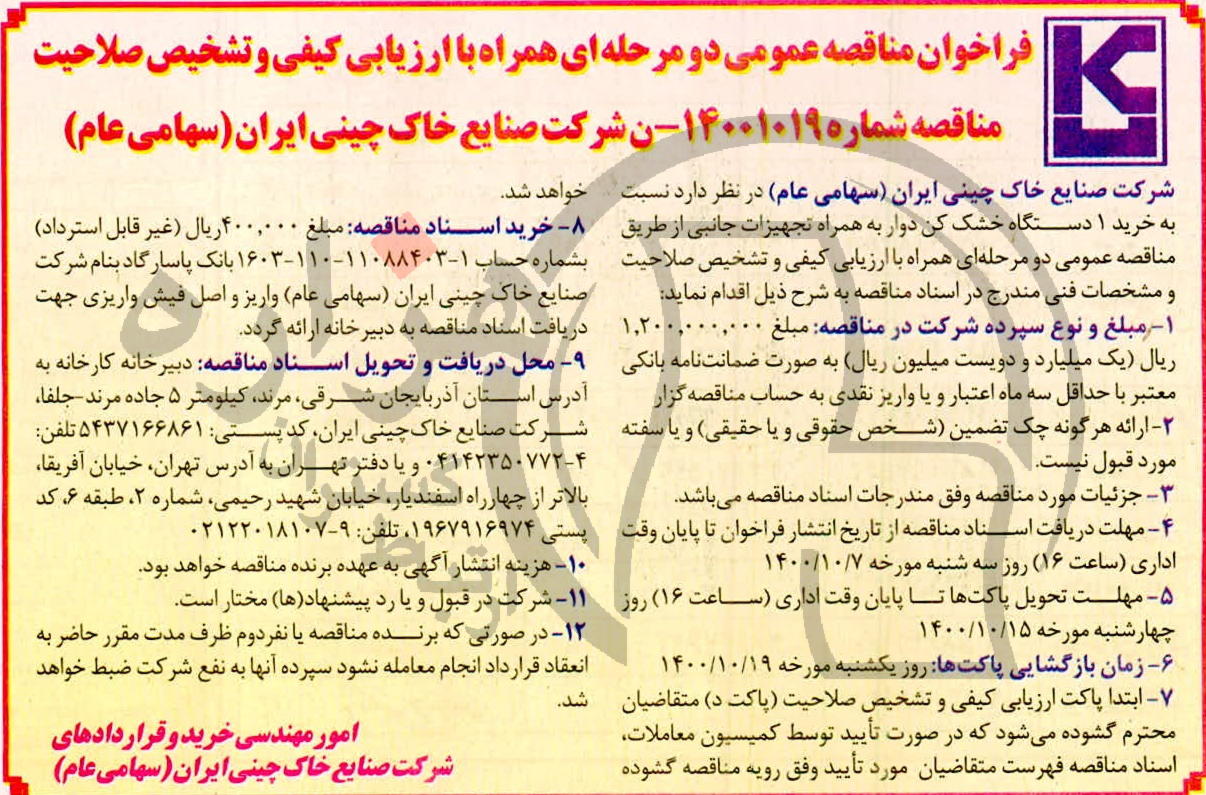 فراخوان مناقصه عمومی دو مرحله ای همراه با ارزیابی کیفی و تشخیص صلاحیت
مناقصه شماره ۱۴۰۰۱۰۱۹-ن شرکت صنایع خاک چینی ایران (سهامی عام)
شرکت صنایع خاک چینی ایران (سهامی عام) در نظر دارد نسبت
به خرید ۱ دستگاه خشک کن دوار به همراه تجهیزات جانبی از طریق
مناقصه عمومی دو مرحله‌ای همراه با ارزیابی کیفی و تشخیص صلاحیت
و مشخصات فنی مندرج در اسناد مناقصه به شرح ذیل اقدام نماید:
۱- مبلغ و نوع سپرده شرکت در مناقصه: مبلغ ۱,۲۰۰,۰۰۰,۰۰۰
ریال (یک میلیارد و دویست میلیون ریال) به صورت ضمانت‌نامه بانکی
معتبر با حداقل سه ماه اعتبار و یا واریز نقدی به حساب مناقصه گزار
۲- ارائه هر گونه چک تضمین (شخص حقوقی و یا حقیقی) و یا سفته
مورد قبول نیست.
۳- جزئیات مورد مناقصه وفق مندرجات اسناد مناقصه می‌باشد.
۴- مهلت دریافت اسناد مناقصه از تاریخ انتشار فراخوان تا پایان وقت
اداری (ساعت ۱۶) روز سه شنبه مورخه ۱۴۰۰/۱۰/۷
۵- مهلت تحویل پاکت‌ها تا پایان وقت اداری (ساعت ۱۶) روز
چهارشنبه مورخه ۱۴۰۰/۱۰/۱۵
۶- زمان بازگشایی پاکت‌ها: روز یکشنبه مورخه ۱۴۰۰/۱۰/۱۹
۷- ابتدا پاکت ارزیابی کیفی و تشخیص صلاحیت (پاکت د) متقاضیان
محترم گشوده می‌شود که در صورت تأیید توسط کمیسیون معاملات،
اسناد مناقصه فهرست متقاضیان مورد تأیید وفق رویه مناقصه گشوده
خواهد شد.
۸- خرید اسناد مناقصه: مبلغ ۴۰۰,۰۰۰ریال (غیر قابل استرداد)
بشماره حساب ۱-۱۱۰۸۸۴۰۳-۱۱۰-۱۶۰۳ بانک پاسارگاد بنام شرکت
صنایع خاک چینی ایران (سهامی عام) واریز و اصل فیش واریزی جهت
دریافت اسناد مناقصه به دبیرخانه ارائه گردد.
۹- محل دریافت و تحویل اسناد مناقصه: دبیرخانه کارخانه به
آدرس استان آذربایجان شرقی، مرند، کیلومتر ۵ جاده مرند-جلفا،
شرکت صنایع خاک‌چینی ایران، کد پستی: ۵۴۳۷۱۶۶۸۶۱ تلفن:
۰۴۱۴۲۳۵۰۷۷۲-۴ و یا دفتر تهران به آدرس تهران، خیابان آفریقا،
بالاتر از چهارراه اسفندیار، خیابان شهید رحیمی، شماره ۲، طبقه ۶، کد
پستی ۱۹۶۷۹۱۶۹۷۴، تلفن: ۹-۰۲۱۲۲۰۱۸۱۰۷
۱۰- هزینه انتشار آگهی به عهده برنده مناقصه خواهد بود.
۱۱- شرکت در قبول و یا رد پیشنهاد(ها) مختار است.
۱۲- در صورتی که برنده مناقصه یا نفر دوم ظرف مدت مقرر حاضر به
انعقاد قرارداد انجام معامله نشود سپرده آنها به نفع شرکت ضبط خواهد
شد.
امور مهندسی خرید و قراردادهای
شرکت صنایع خاک چینی ایران (سهامی عام)
هزاره
گستران
ارتباط